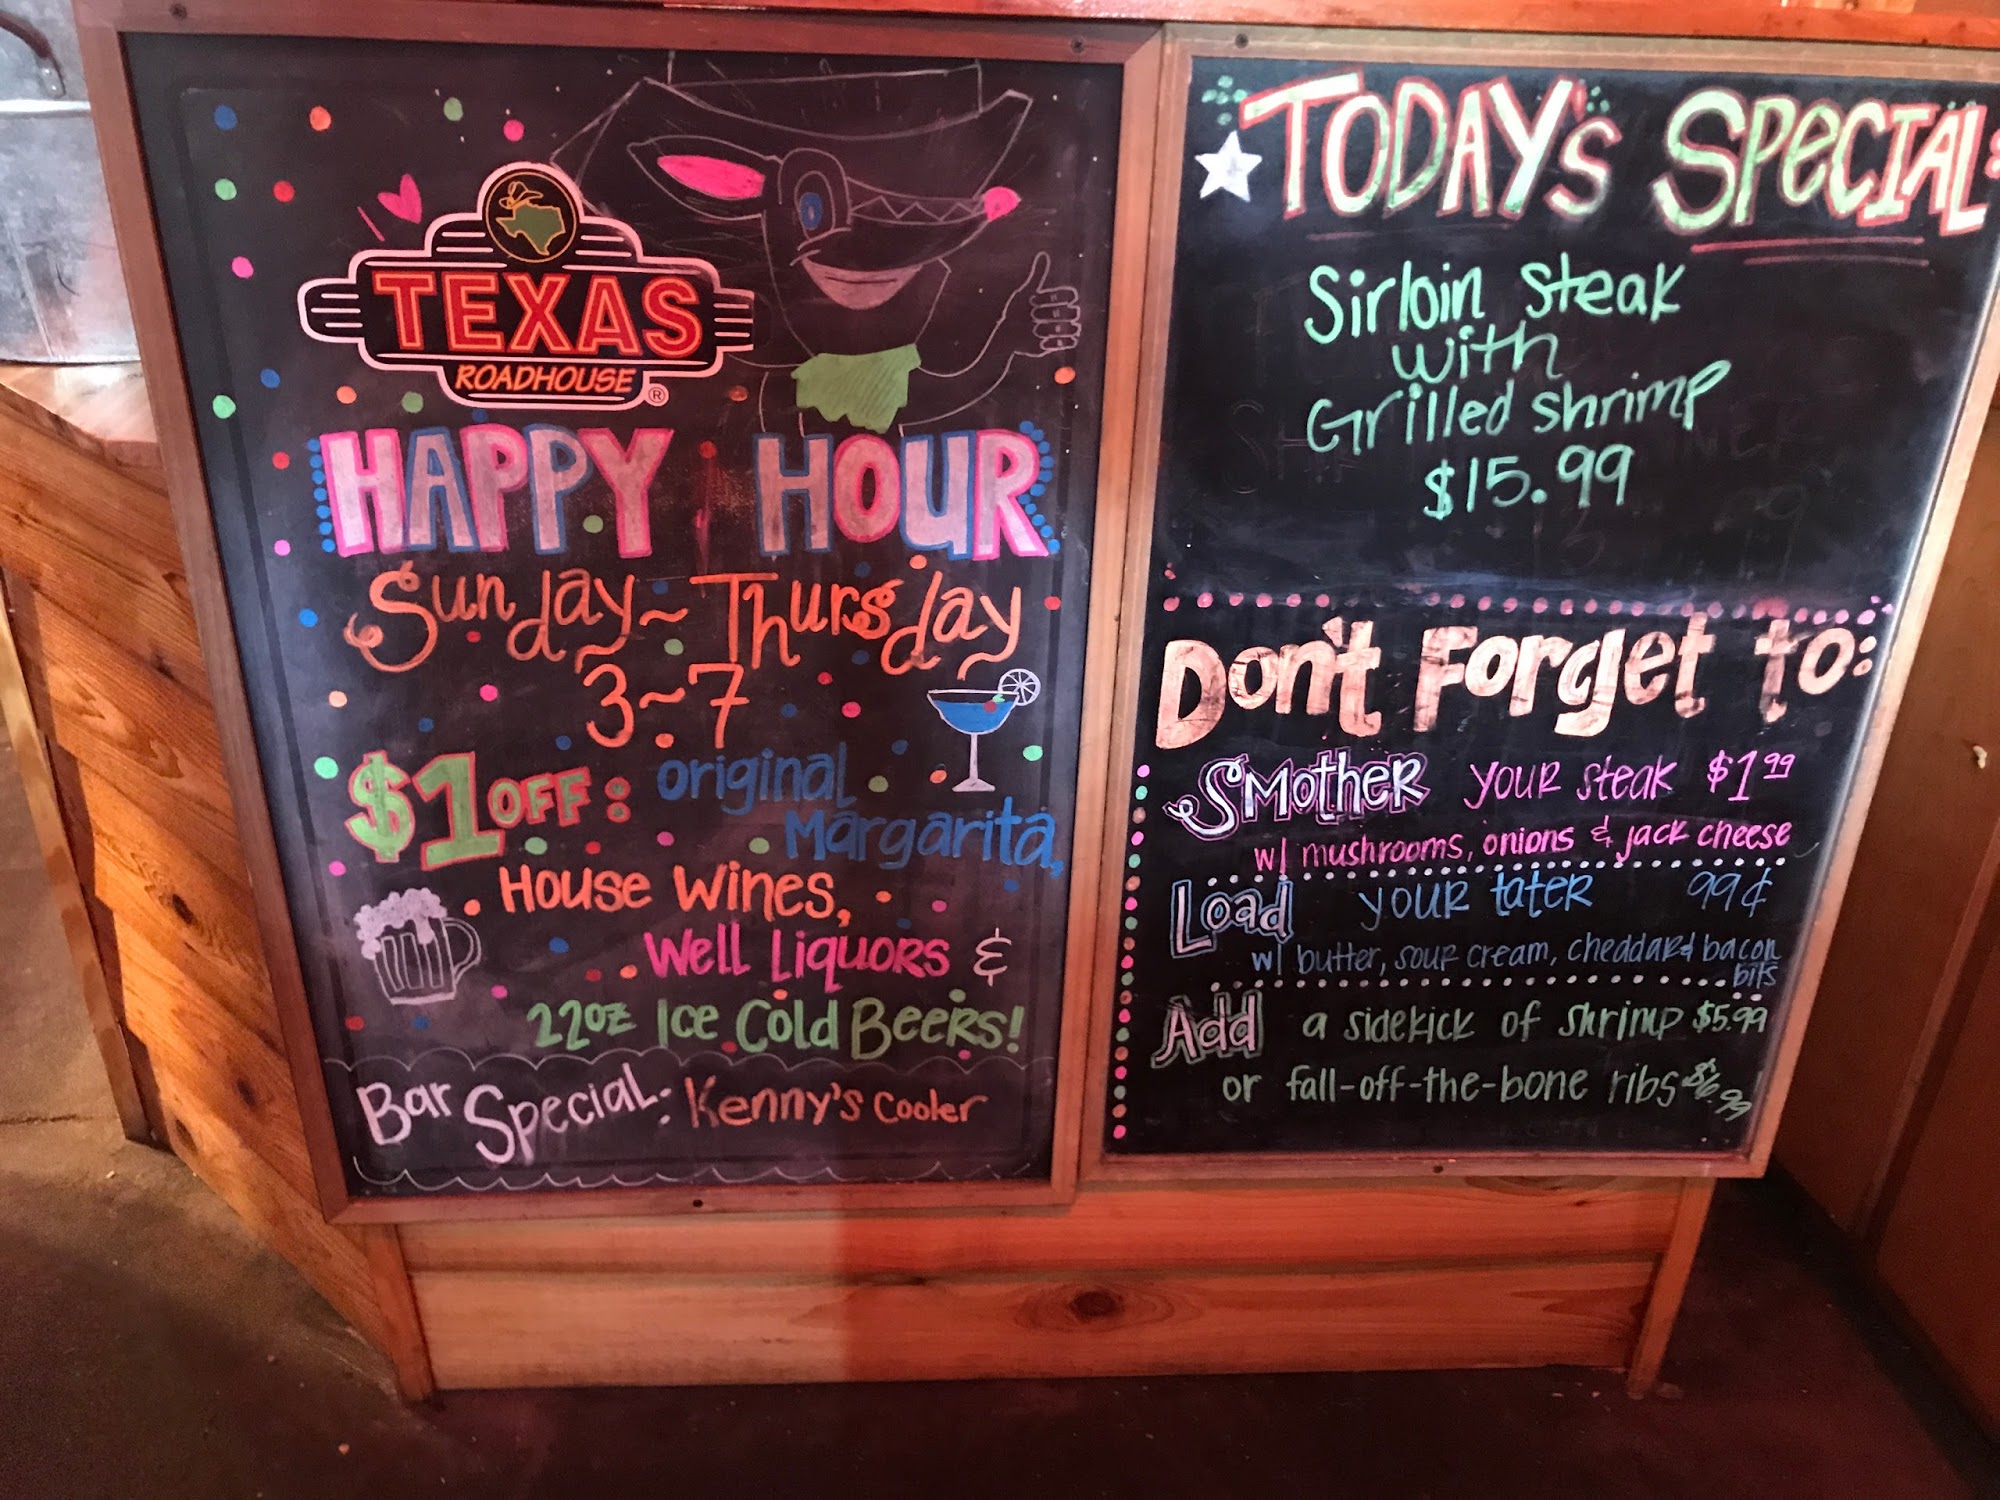 TEXAS
ROADHOUSE
®
HAPPY HOUR
Sunday~Thursday
3~7
$1 OFF: original
Margarita,
House Wines,
Well Liquors &
22oz Ice Cold Beers!
Bar Special: Kenny's Cooler
TODAY's SPECIAL:
Sirloin Steak
with
Grilled shrimp
$15.99
Don't Forget to:
SMOTHER your steak $1.99
w/ mushrooms, onions & jack cheese
Load your tater 99¢
w/ butter, sour cream, cheddar & bacon
bits
Add a sidekick of shrimp $5.99
or fall-off-the-bone ribs $6.99